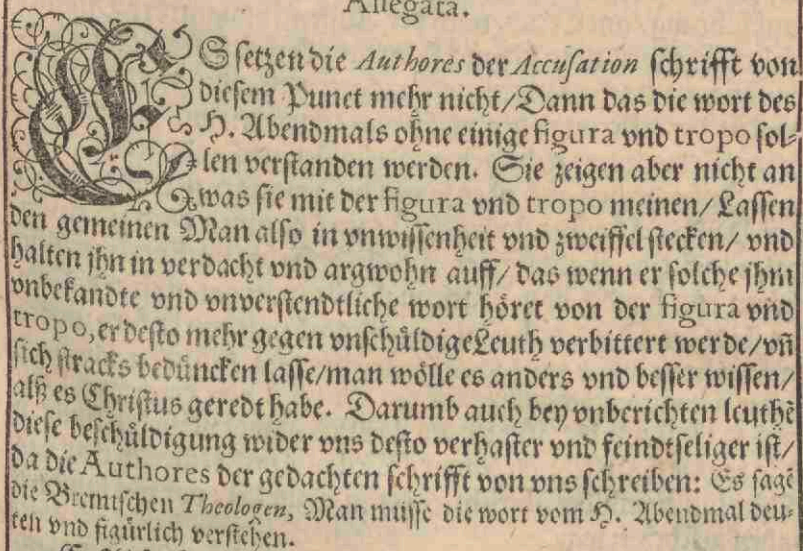 Allegata.
ES setzen die Authores der Accusation schrifft von
diesem Punct mehr nicht/Dann das die wort des
H. Abendmals ohne einige figura vnd tropo sol-
len verstanden werden. Sie zeigen aber nicht an
was sie mit der figura vnd tropo meinen/ Lassen
den gemeinen Man also in vnwissenheit vnd zweiffel stecken/ vnd
halten jhn in verdacht vnd argwohn auff/ das wenn er solche jhm
vnbekandte vnd vnverstendtliche wort höret von der figura vnd
tropo, er desto mehr gegen vnschüldige Leuth verbittert werde/vñ
sich stracks bedüncken lasse/man wölle es anders vnd besser wissen/
alß es Christus geredt habe. Darumb auch bey vnberichten leuthẽ
diese beschüldigung wider vns desto verhaster vnd feindtseliger ist/
da die Authores der gedachten schrifft von vns schreiben: Es sagẽ
die Bremischen Theologen, Man müsse die wort vom H. Abendmal deu-
ten vnd figürlich verstehen.